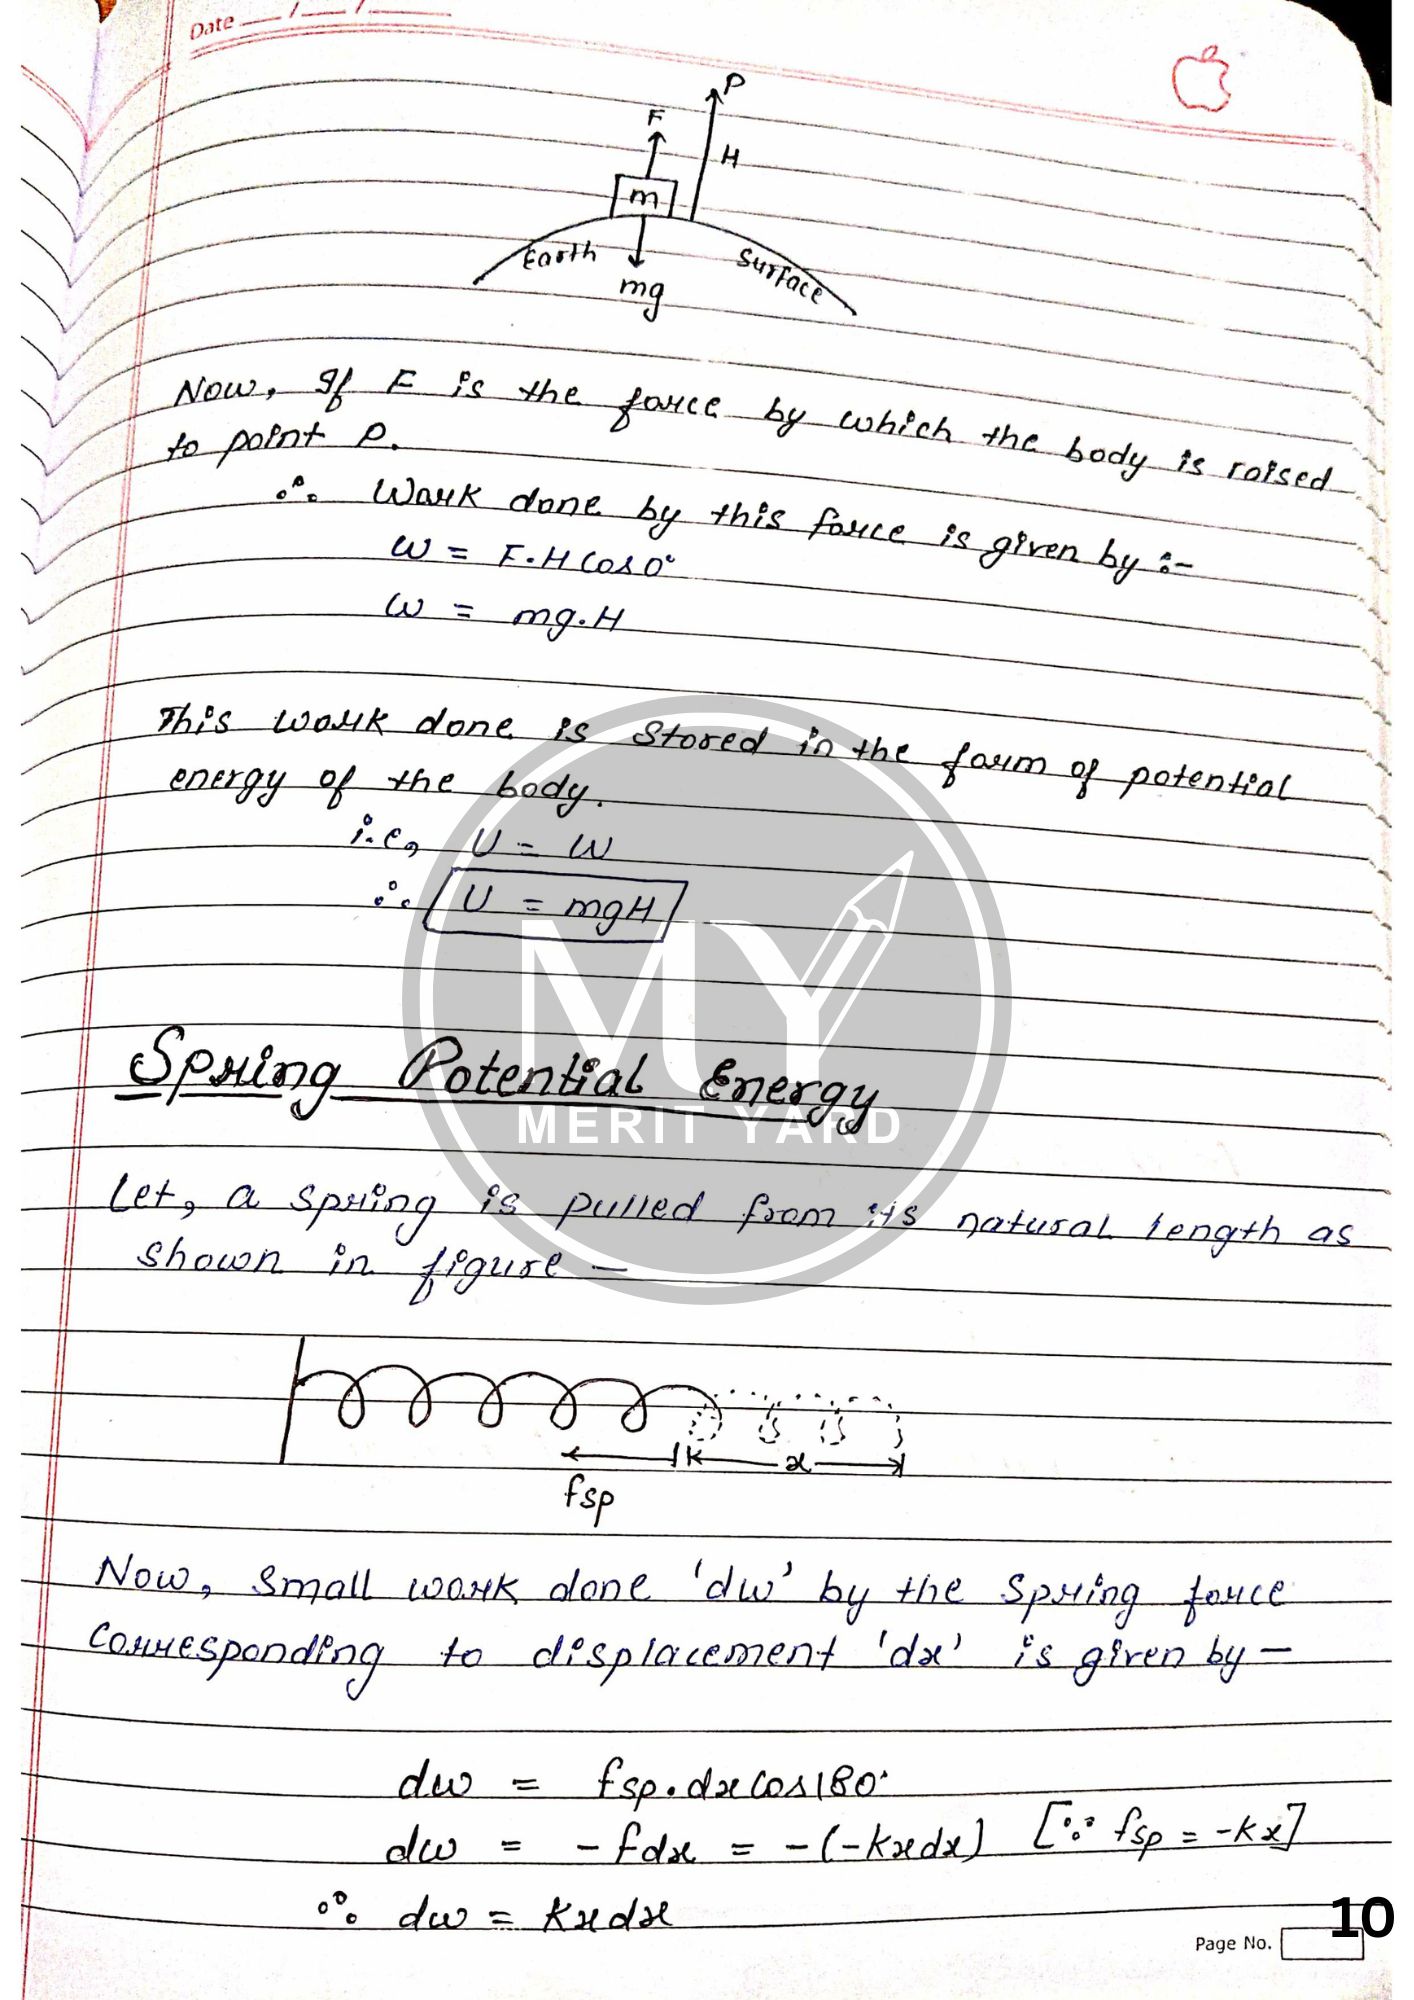 Date __/__/__
P
F
H
m
Earth
Surface
mg
Now, If F is the force by which the body is raised
to point P.
∴ Work done by this force is given by :-
W = F.H Cos0°
W = mg.H
This work done is stored in the form of potential
energy of the body.
i.e, U = W
∴ U = mgH
MY
Spring Potential Energy
MERIT YARD
Let, a spring is pulled from its natural length as
shown in figure -
x
fsp
Now, small work done 'dw' by the spring force
corresponding to displacement 'dx' is given by -
dw = fsp.dx cos180°
dw = -fdx = -(-kxdx) [∵ fsp = -kx]
∴ dw = kxdx
10
Page No.